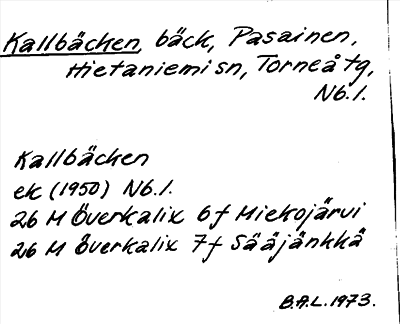 Kallbäcken, bäck, Pasainen,
Hietaniemi sn, Torneå tg,
Nb.l.
Kallbäcken
ek (1950) Nb.l.
26 M Överkalix 6f Miekojärvi
26 M Överkalix 7f Sääjänkkä
B.A.L. 1973.